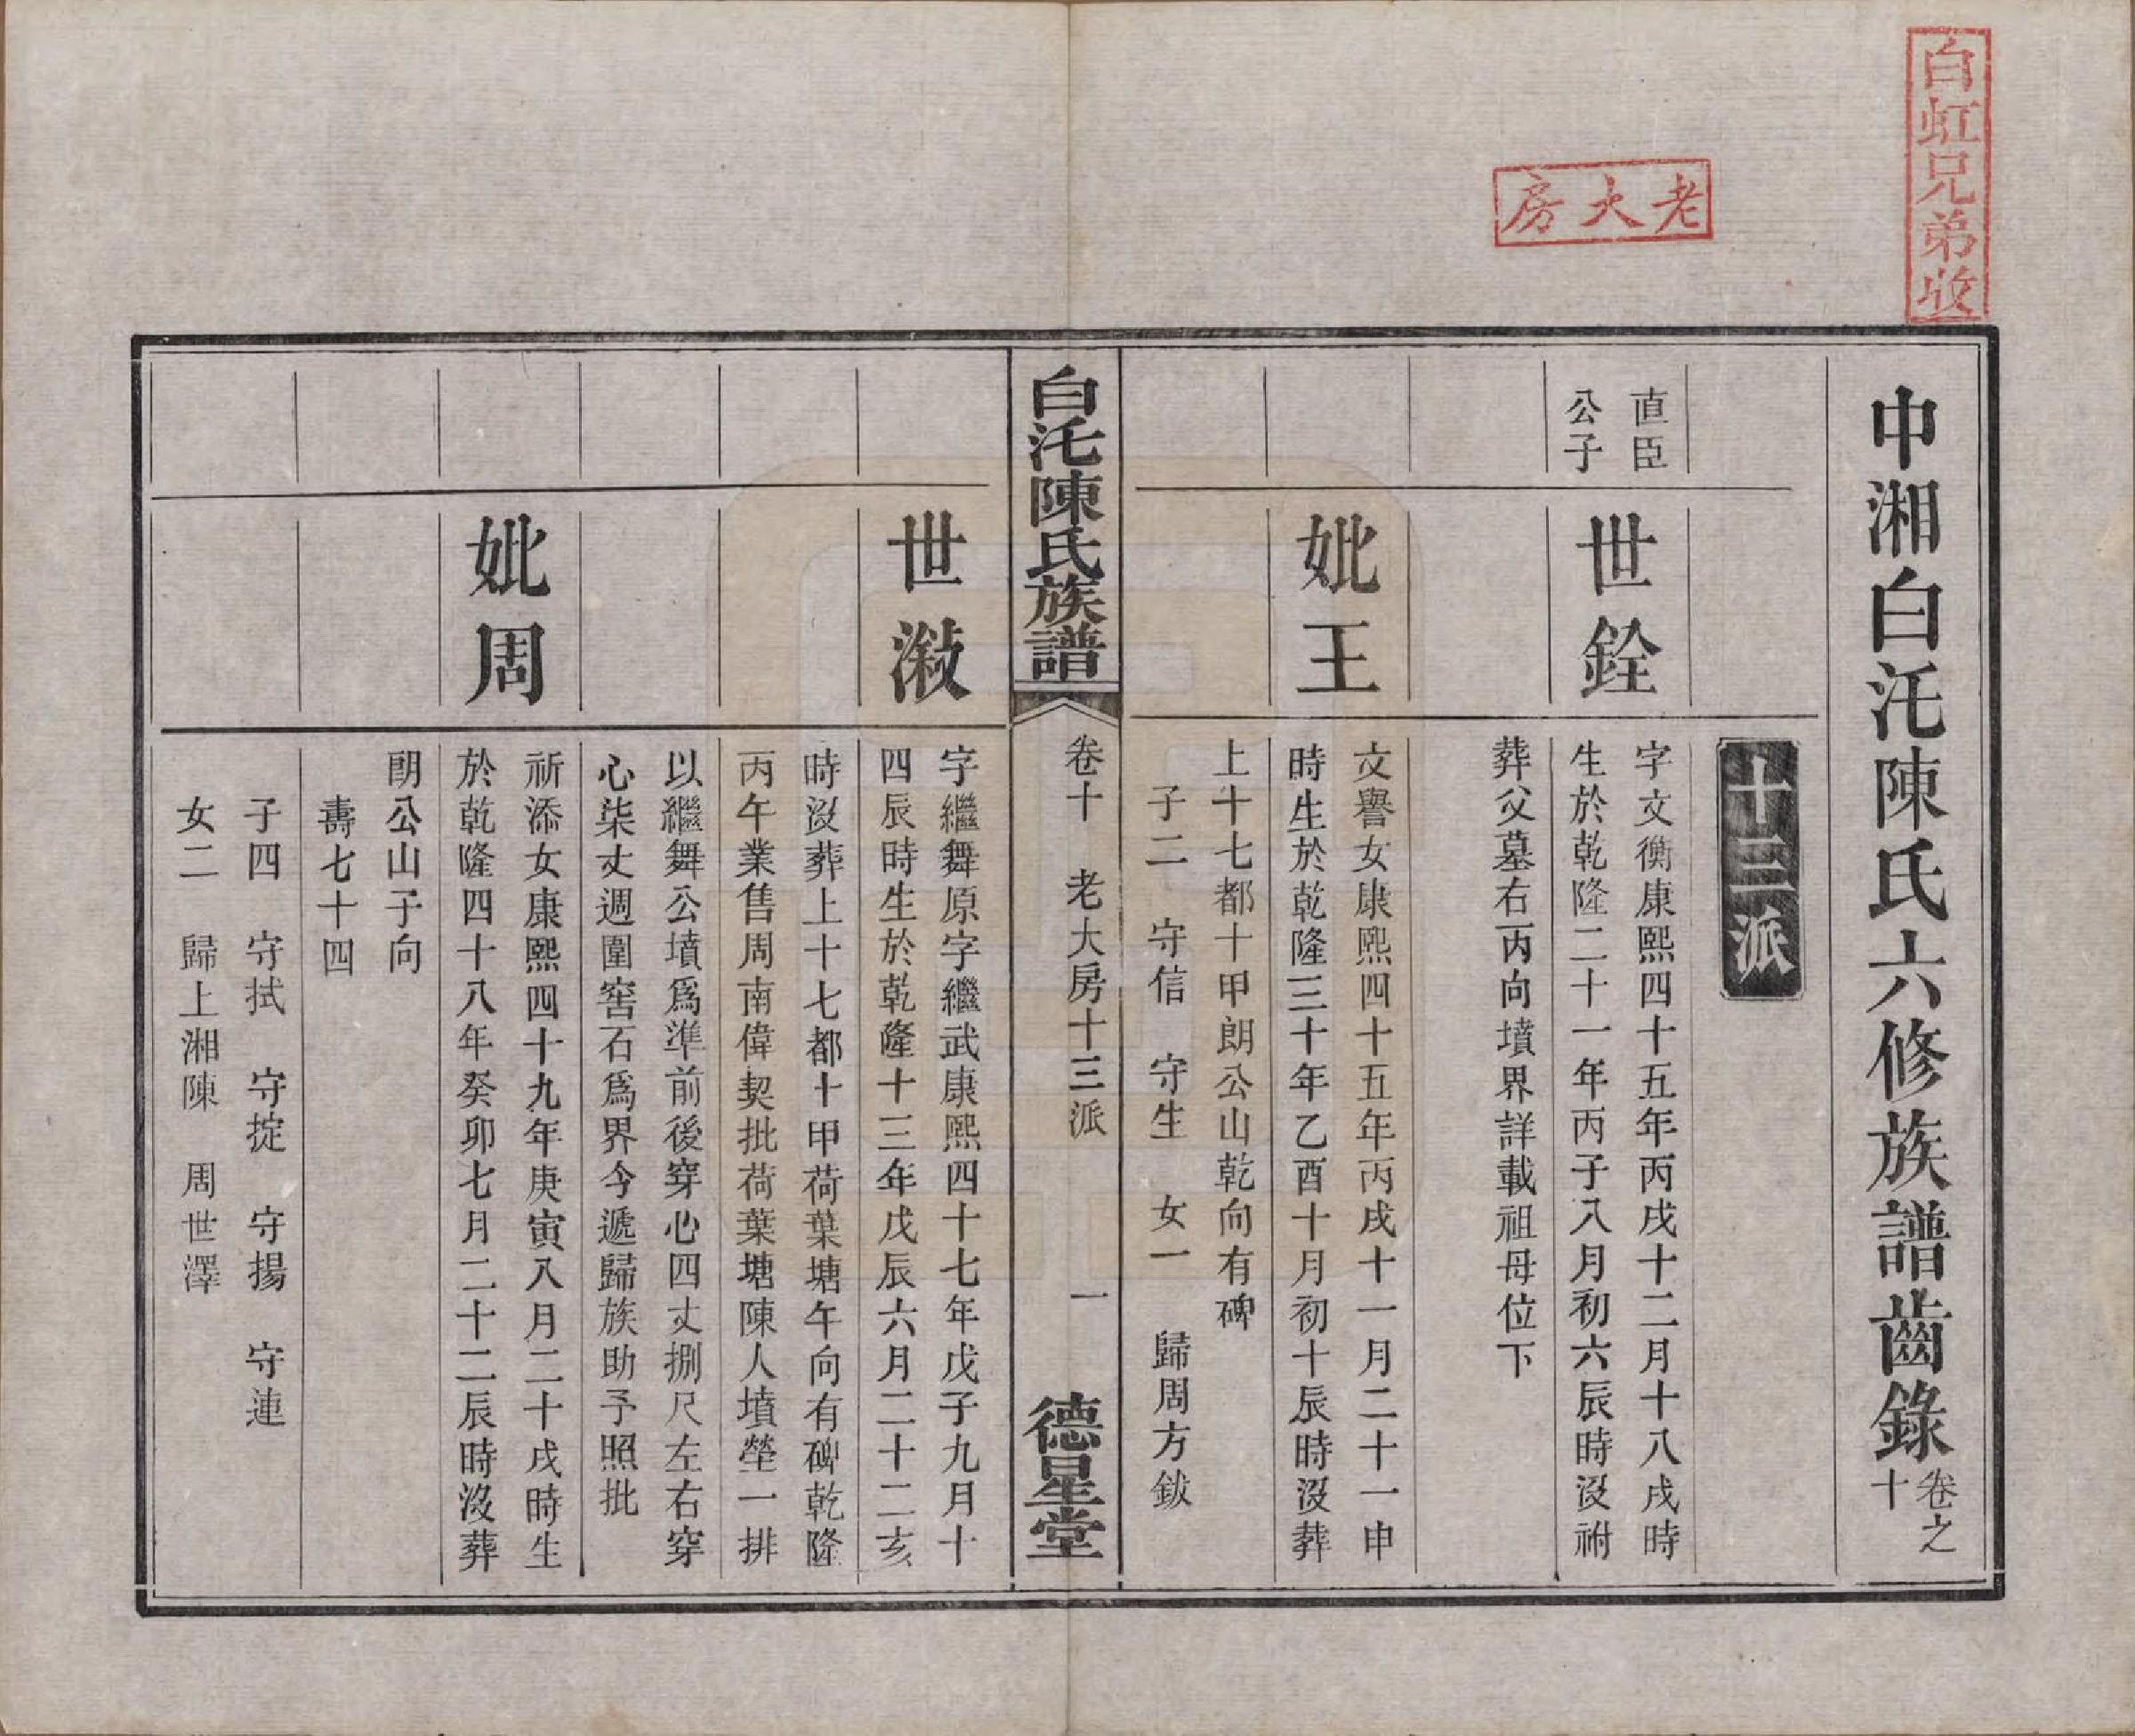 白虹兄弟收
老大房
中湘白汑陳氏六修族譜齒錄卷之十
十三派
直臣
公子
世銓
字文衡康熙四十五年丙戌十二月十八戌時
生於乾隆二十一年丙子八月初六辰時沒祔
葬父墓右丙向墳界詳載祖母位下
妣王
文譽女康熙四十五年丙戌十一月二十一申
時生於乾隆三十年乙酉十月初十辰時沒葬
上十七都十甲朗公山乾向有碑
子二 守信 守生 女一 歸周方鈸
白汑陳氏族譜 卷十 老大房十三派 一 德星堂
世漵
字繼舞原字繼武康熙四十七年戊子九月十
四辰時生於乾隆十三年戊辰六月二十二亥
時沒葬上十七都十甲荷葉塘午向有碑乾隆
丙午業售周南偉契批荷葉塘陳人墳塋一排
以繼舞公墳爲準前後穿心四丈捌尺左右穿
心柒丈週圍窖石爲界今遞歸族助予照批
妣周
祈添女康熙四十九年庚寅八月二十戌時生
於乾隆四十八年癸卯七月二十二辰時沒葬
朗公山子向
壽七十四
子四 守拭 守掟 守揚 守連
女二 歸上湘陳 周世澤